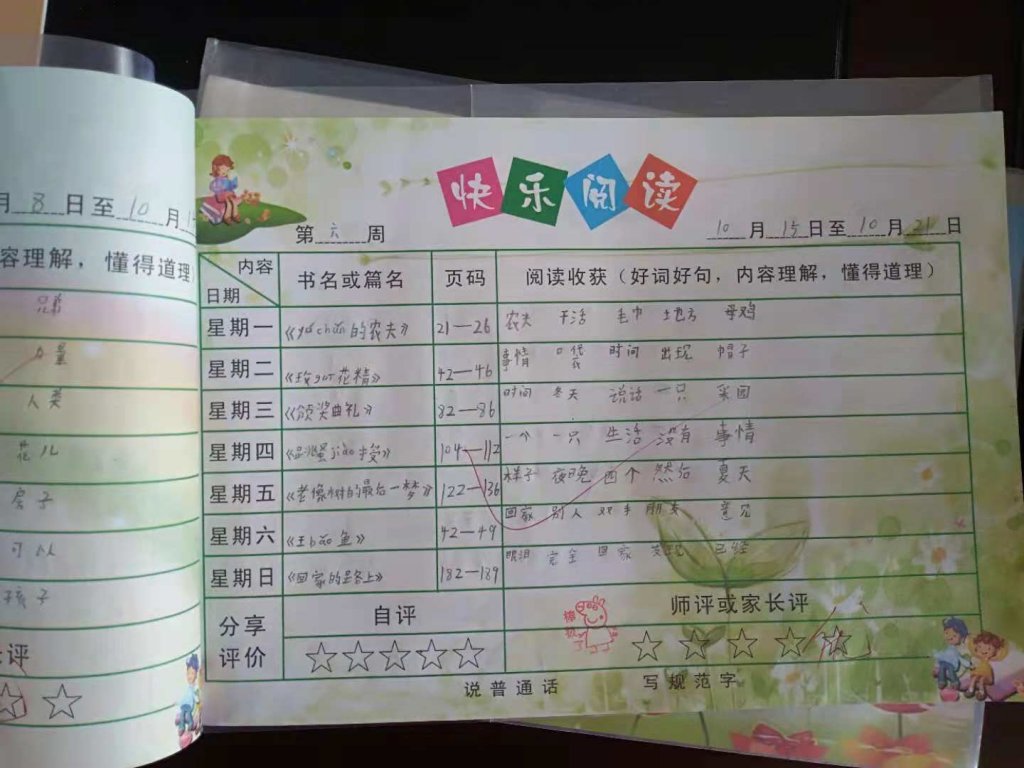 月 8 日至 10 月
容理解，懂得道理
兄弟
力量
人类
花儿
房子
可以
孩子
评
快乐阅读
第 六 周
10 月 15 日至 10 月 21 日
内容
日期
书名或篇名
页码
阅读收获（好词好句，内容理解，懂得道理）
星期一
的农夫》
21—26
农夫 干活 毛巾 地方 母鸡
星期二
花精》
42—46
事情 口袋 时间 出现 帽子
星期三
《颁奖典礼》
82—86
时间 冬天 说话 一只 菜园
星期四
104—112
一个 一只 生活 没有 事情
星期五
《老橡树的最后一梦》
122—136
样子 夜晚 四个 然后 夏天
星期六
鱼》
42—49
回家 别人 双手 朋友 意见
星期日
《回家的路上》
182—189
眼泪 完全 回家 发现 已经
分享
评价
自评
师评或家长评
棒极了
说普通话
写规范字